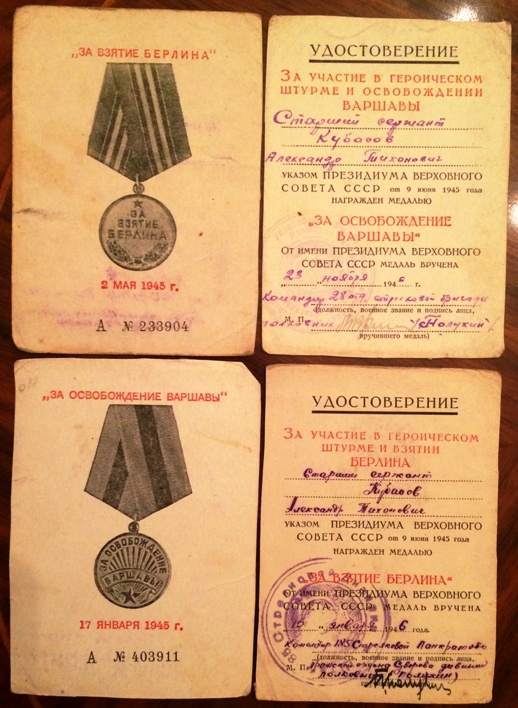 „ЗА ВЗЯТИЕ БЕРЛИНА“
ЗА
ВЗЯТИЕ
БЕРЛИНА
2 МАЯ 1945 г.
А № 233904
УДОСТОВЕРЕНИЕ
ЗА УЧАСТИЕ В ГЕРОИЧЕСКОМ
ШТУРМЕ И ОСВОБОЖДЕНИИ
ВАРШАВЫ
Старший сержант
Кубасов
Александр Тихонович
УКАЗОМ ПРЕЗИДИУМА ВЕРХОВНОГО
СОВЕТА СССР от 9 июня 1945 года
НАГРАЖДЕН МЕДАЛЬЮ
„ЗА ОСВОБОЖДЕНИЕ
ВАРШАВЫ“
От ИМЕНИ ПРЕЗИДИУМА ВЕРХОВНОГО
СОВЕТА СССР МЕДАЛЬ ВРУЧЕНА
„23 „ ноября 1946 г.
Командир 28 стрелковой бригады
(должность, военное звание и подпись лица,
М. П. полковник /Полухин/
вручившего медаль)
„ЗА ОСВОБОЖДЕНИЕ ВАРШАВЫ“
ЗА ОСВОБОЖДЕНИЕ
ВАРШАВЫ
17 ЯНВАРЯ 1945 г.
А № 403911
УДОСТОВЕРЕНИЕ
ЗА УЧАСТИЕ В ГЕРОИЧЕСКОМ
ШТУРМЕ И ВЗЯТИИ
БЕРЛИНА
Старший сержант
Кубасов
Александр Тихонович
УКАЗОМ ПРЕЗИДИУМА ВЕРХОВНОГО
СОВЕТА СССР от 9 июня 1945 года
НАГРАЖДЕН МЕДАЛЬЮ
„ЗА ВЗЯТИЕ БЕРЛИНА“
От ИМЕНИ ПРЕЗИДИУМА ВЕРХОВНОГО
СОВЕТА СССР МЕДАЛЬ ВРУЧЕНА
„15 „ января 1946 года.
Командир Стрелковой
(должность, военное звание и подпись лица,
М. П. ордена Суворова
полковник (Полухин)